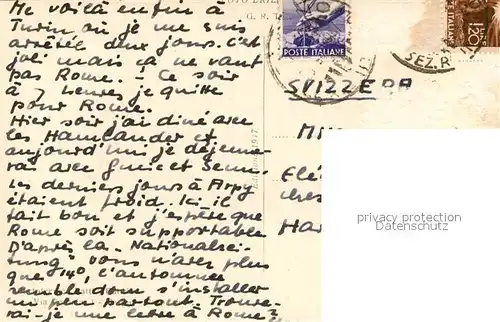 Me voilà enfin à
Turin où je me suis
arrêtée deux jours. C'est
joli mais ça ne vaut
pas Rome. – Ce soir
à 7 heures je quitte
pour Rome.
Hier soir j'ai dîné avec
les et
aujourd'hui je déjeune-
rai avec et
Les derniers jours à Arpy
étaient froid. Ici il
fait bon et j'espère que
Rome soit supportable
D'après la "Nationalzei-
tung" vous n'avez plus
que 14°, l'automne
semble donc s'installer
un peu partout. Trouve-
rai-je une lettre à Rome?
G. R.
POSTE ITALIANE
POSTE ITALIANE
1,20
LIRE
SEZ. R
SVIZZERA
privacy protection
Datenschutz